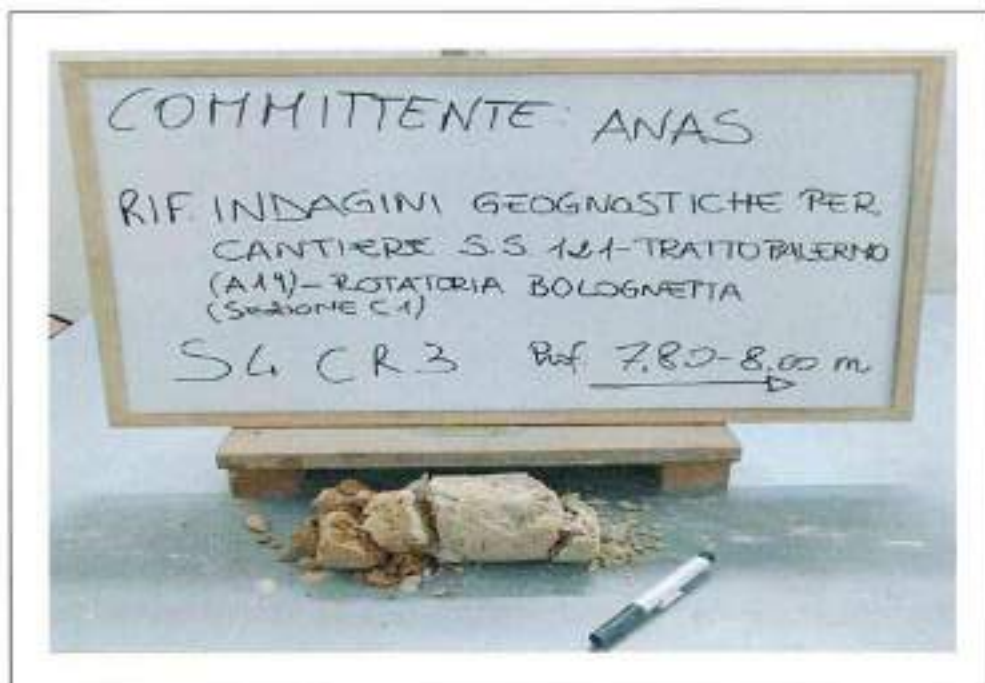 COMMITTENTE: ANAS
RIF. INDAGINI GEOGNOSTICHE PER
CANTIERE S.S 121-TRATTO PALERMO
(A19)-ROTATORIA BOLOGNETTA
(SEZIONE C1)
S4 CR3 Prof 7.80-8.00 m